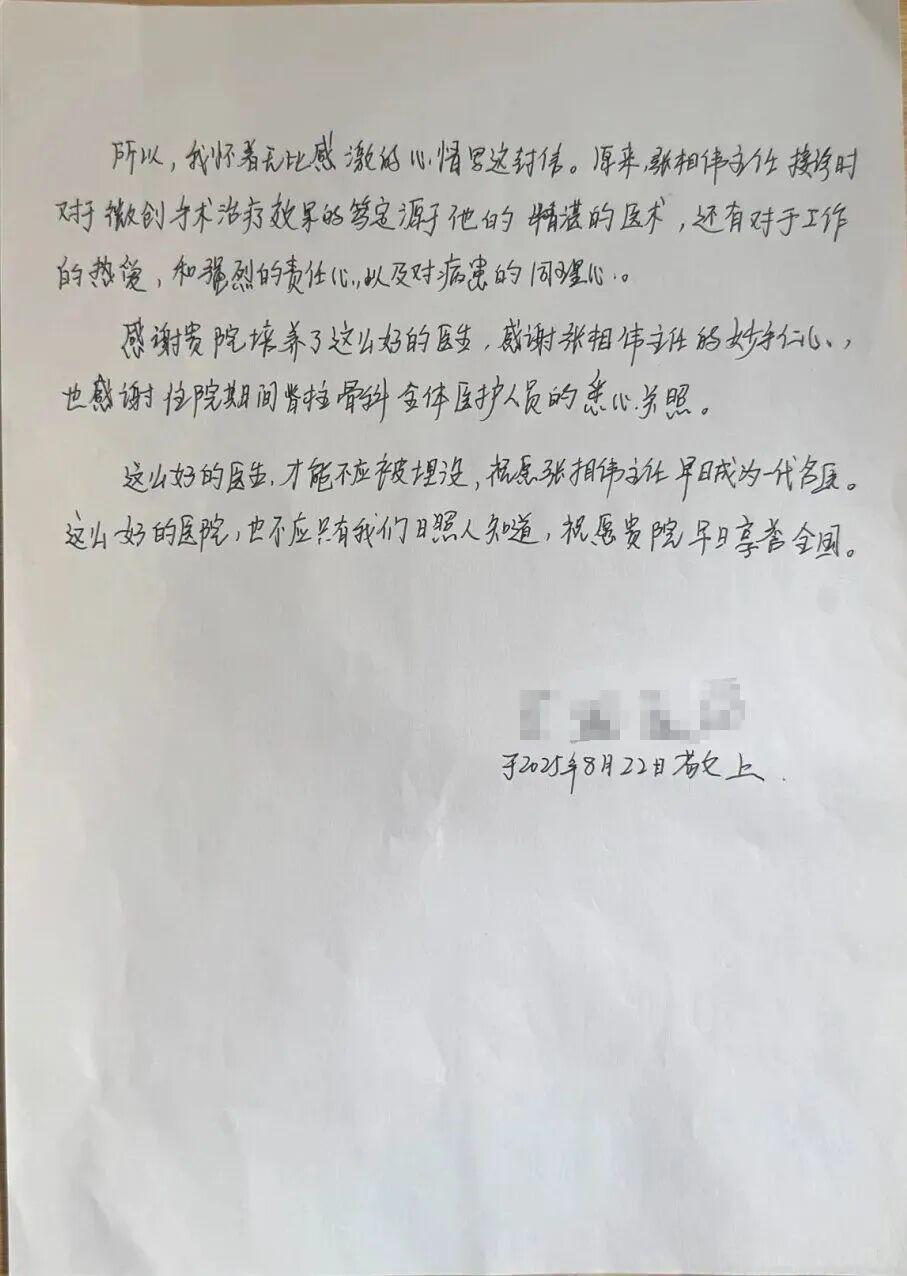 所以，我怀着无比感激的心情写这封信。原来，张相伟主任接诊时
对于微创手术治疗效果的笃定源于他的精湛的医术，还有对于工作
的热爱，和强烈的责任心，以及对病患的同理心。
感谢贵院培养了这么好的医生，感谢张相伟主任的妙手仁心，
也感谢住院期间脊柱骨科全体医护人员的悉心关照。
这么好的医生，才能不应被埋没，祝愿张相伟主任早日成为一代名医。
这么好的医院，也不应只有我们日照人知道，祝愿贵院早日享誉全国。
于2025年8月22日敬上